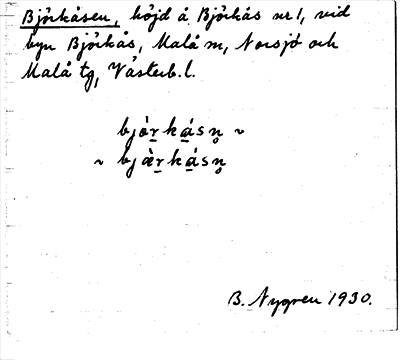 Björkåsen, höjd å Björkås nr 1, vid
byn Björkås, Malå sn, Norsjö och
Malå tg, Västerb. l.
bjö̀r̠kásn̥ ~
~ bjæ̀r̠ka̠ásn̥
B. Nygren 1930.